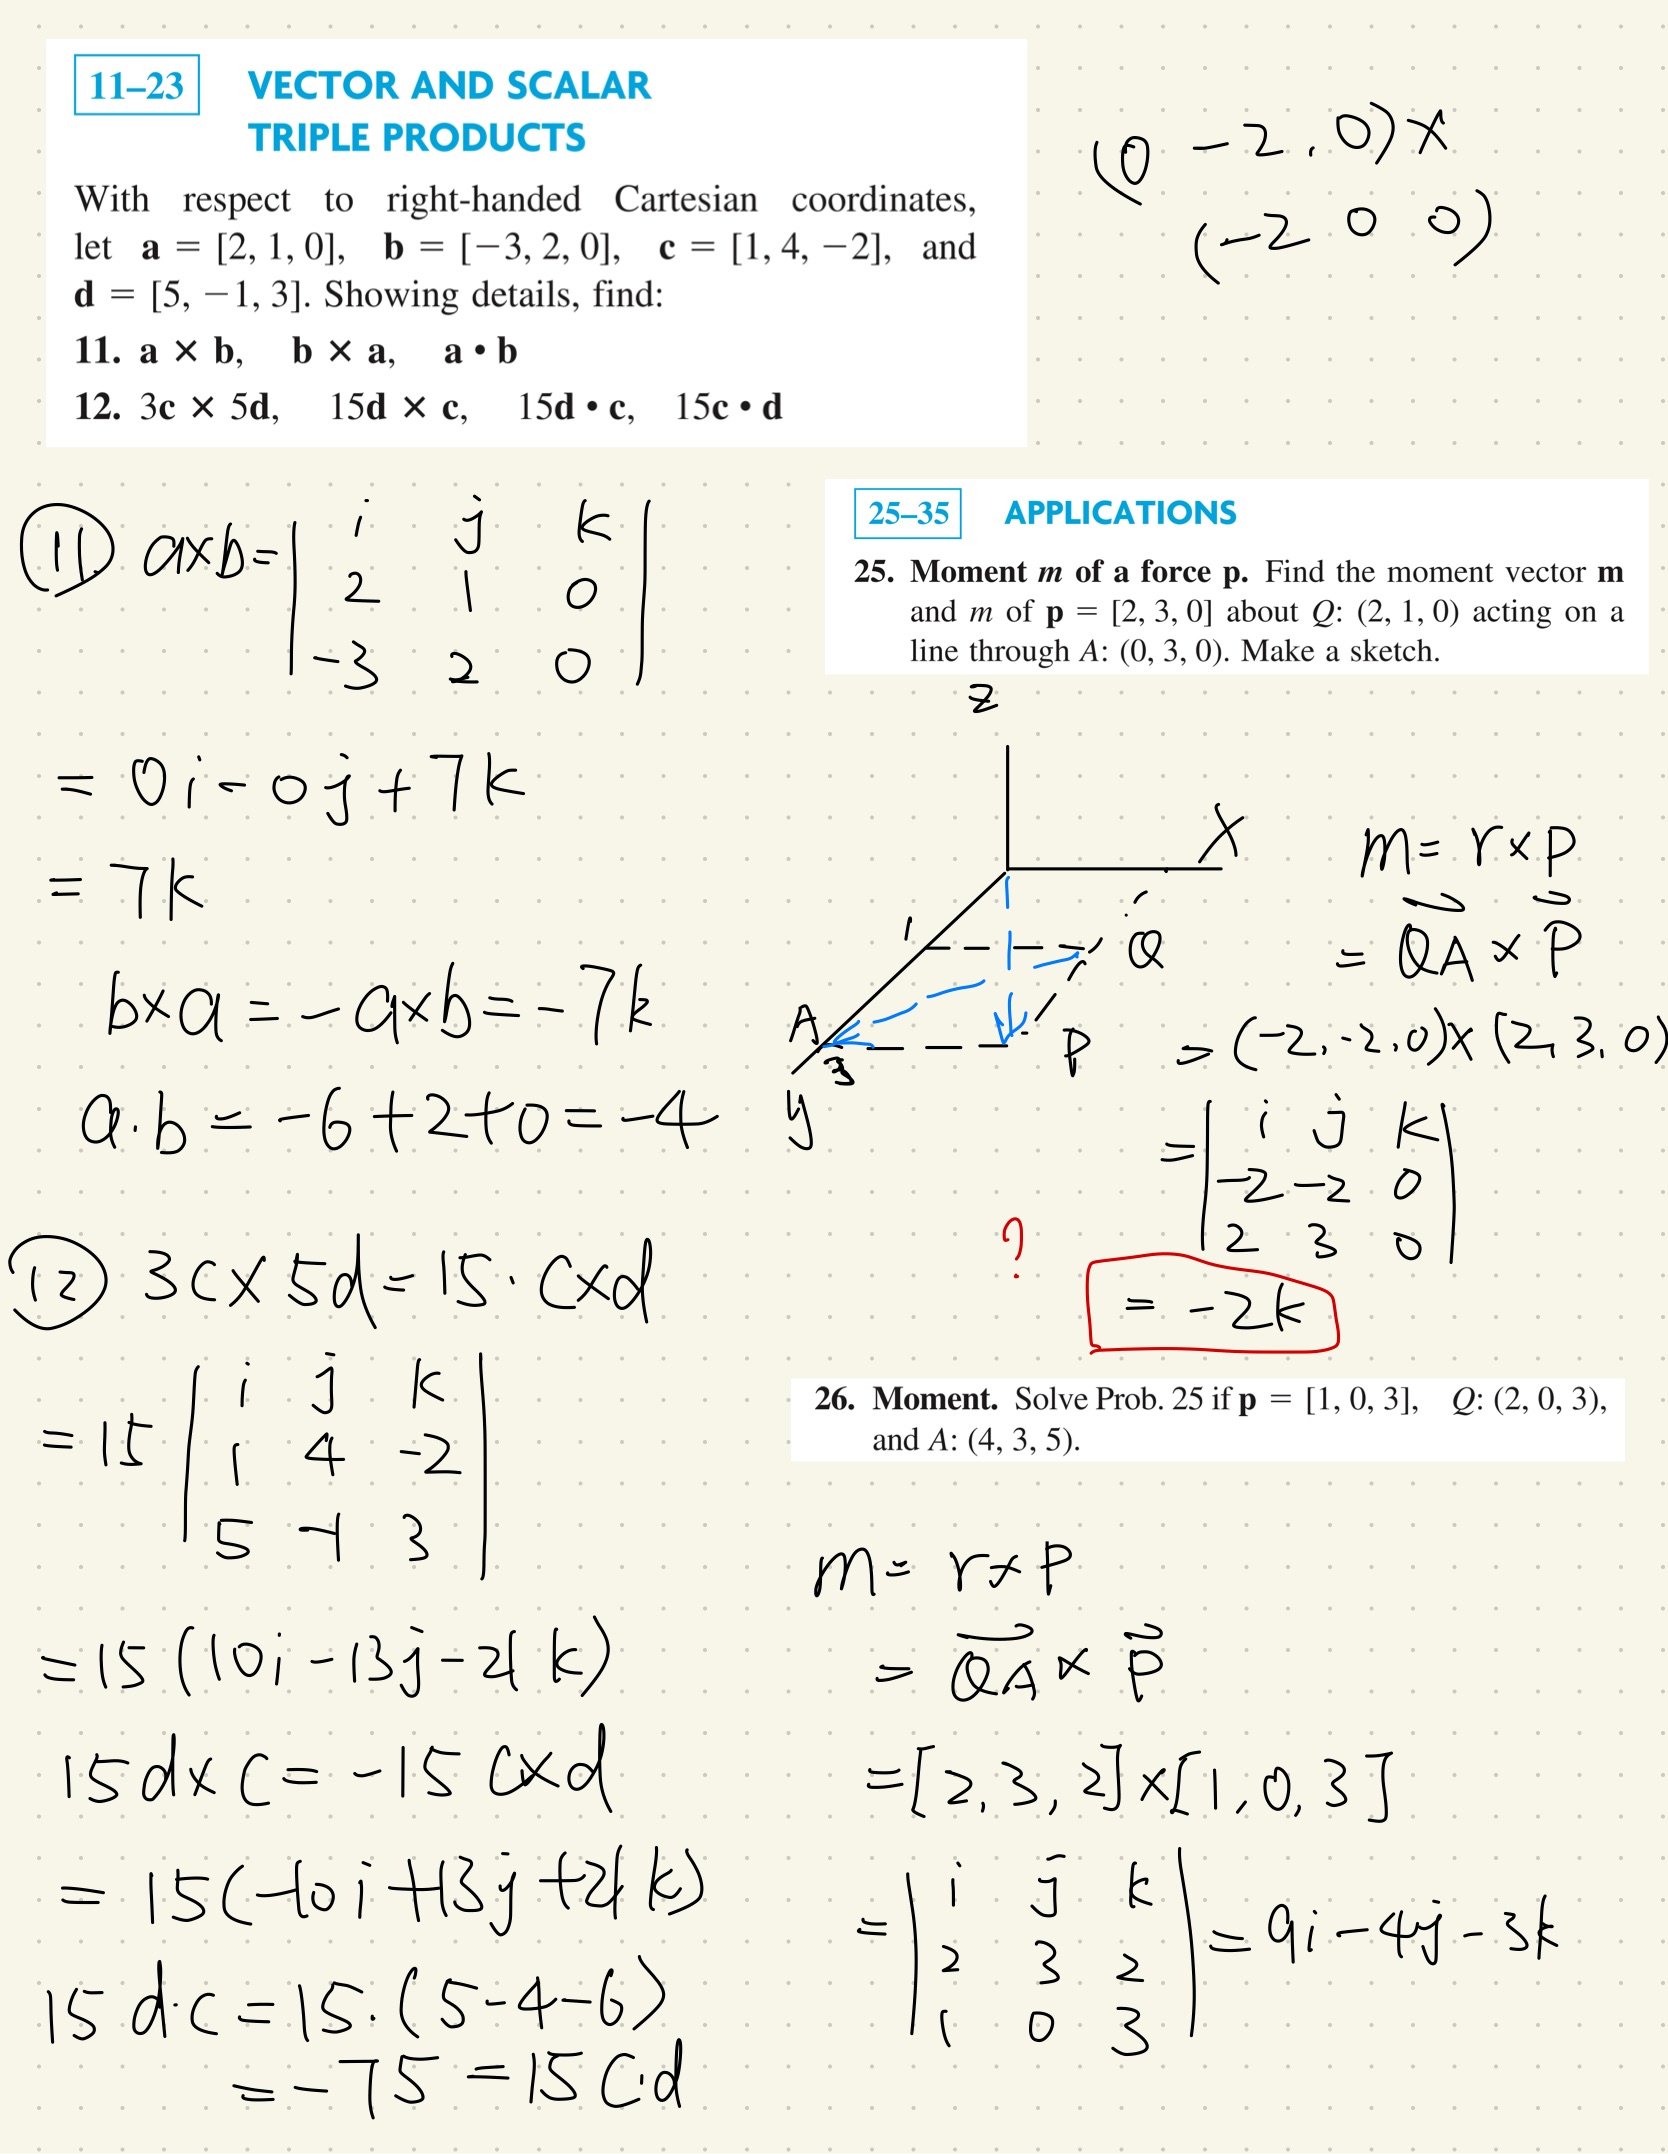 11–23 VECTOR AND SCALAR
TRIPLE PRODUCTS
With respect to right-handed Cartesian coordinates,
let a = [2, 1, 0], b = [−3, 2, 0], c = [1, 4, −2], and
d = [5, −1, 3]. Showing details, find:
11. a × b, b × a, a • b
12. 3c × 5d, 15d × c, 15d • c, 15c • d
(0 -2, 0) ×
(-2 0 0)
⑪ a×b = | i j k |
| 2 1 0 |
| -3 2 0 |
= 0i - 0j + 7k
= 7k
b×a = -a×b = -7k
a·b = -6+2+0 = -4
⑫ 3c × 5d = 15·c×d
= 15 | i j k |
| 1 4 -2 |
| 5 -1 3 |
= 15(10i -13j -21k)
15d×c = -15c×d
= 15(-10i +13j +21k)
15d·c = 15·(5-4-6)
= -75 = 15c·d
25–35 APPLICATIONS
25. Moment m of a force p. Find the moment vector m
and m of p = [2, 3, 0] about Q: (2, 1, 0) acting on a
line through A: (0, 3, 0). Make a sketch.
z
x
1
Q
A
3
P
y
m = r×p
= QA × P
= (-2,-2,0)×(2,3,0)
= | i j k |
| -2 -2 0 |
| 2 3 0 |
?
= -2k
26. Moment. Solve Prob. 25 if p = [1, 0, 3], Q: (2, 0, 3),
and A: (4, 3, 5).
m = r×p
= QA × P
= [2,3,2]×[1,0,3]
= | i j k | = 9i -4j -3k
| 2 3 2 |
| 1 0 3 |